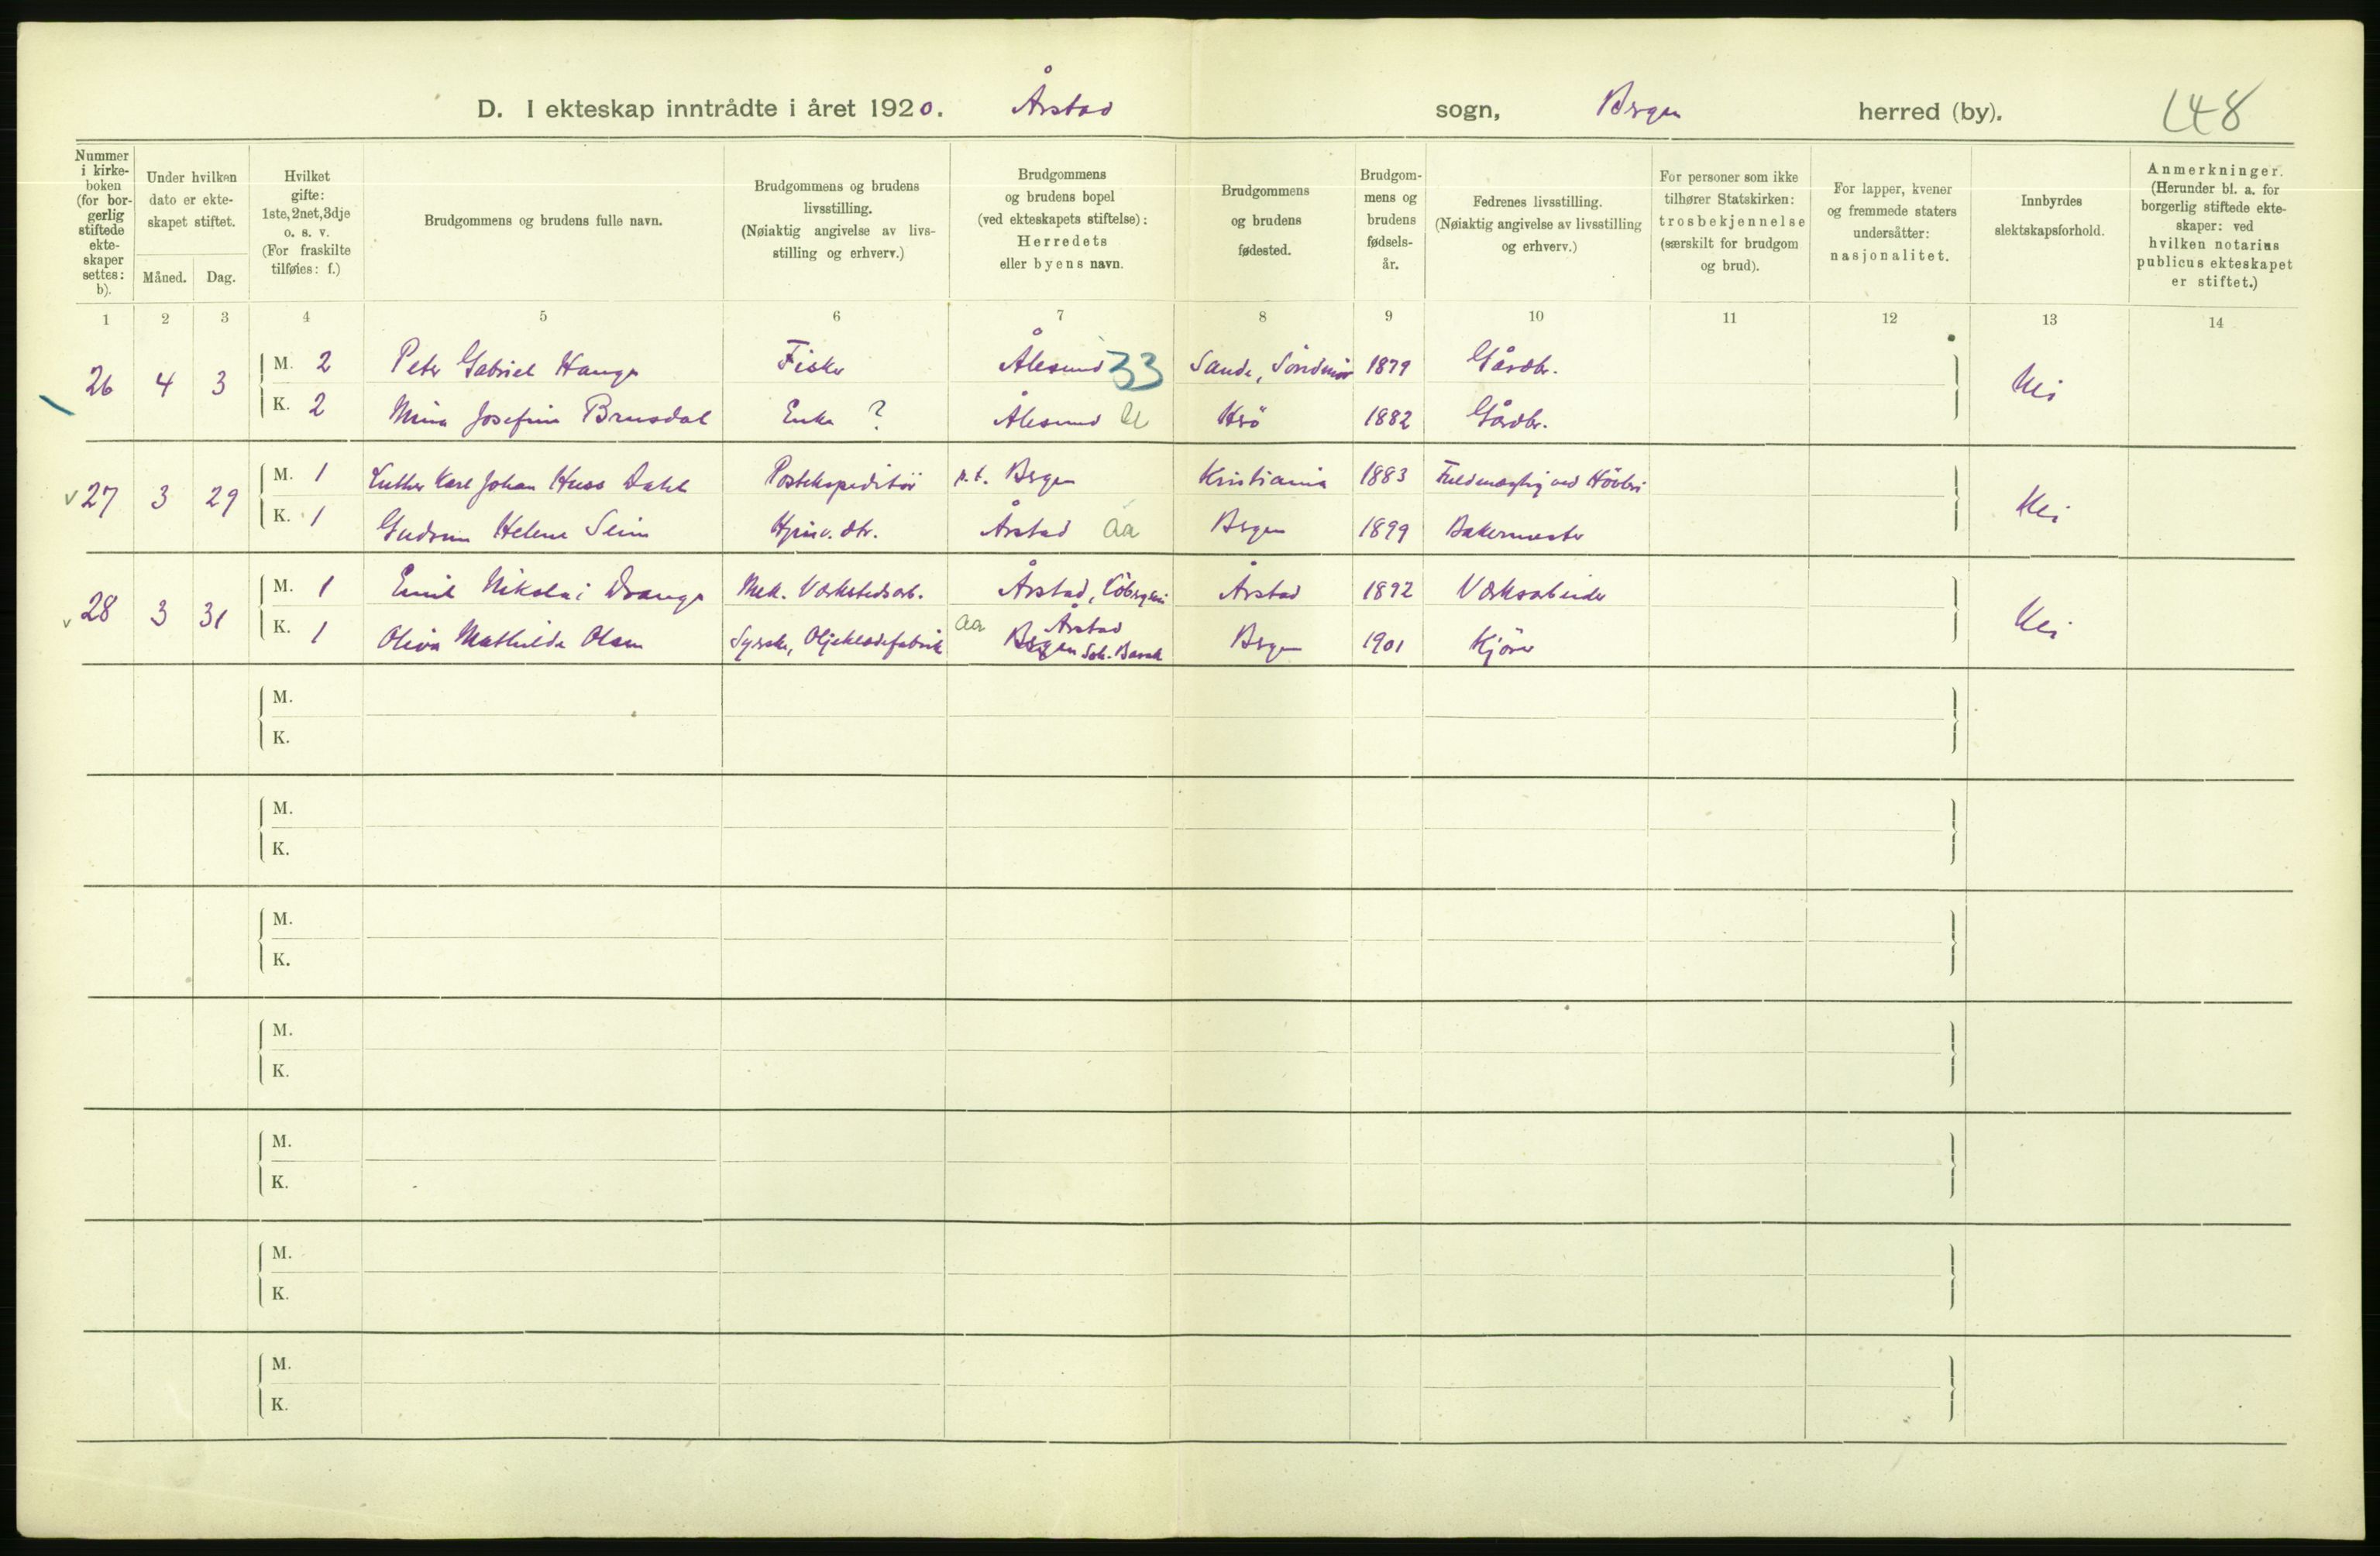 D. I ekteskap inntrådte i året 1920. Årstad sogn, Bergen herred (by). 148
Nummer i kirke-boken (for bor-gerlig stiftede ekte-skaper settes: b).
Under hvilken dato er ekte-skapet stiftet.
Måned. Dag.
Hvilket gifte: 1ste, 2net, 3dje o. s. v. (For fraskilte tilføies: f.)
Brudgommens og brudens fulle navn.
Brudgommens og brudens livsstilling. (Nøiaktig angivelse av livs-stilling og erhverv.)
Brudgommens og brudens bopel (ved ekteskapets stiftelse): Herredets eller byens navn.
Brudgommens og brudens fødested.
Brudgom-mens og brudens fødsels-år.
Fedrenes livsstilling. (Nøiaktig angivelse av livsstilling og erhverv.)
For personer som ikke tilhører Statskirken: trosbekjennelse (særskilt for brudgom og brud).
For lapper, kvener og fremmede staters undersåtter: nasjonalitet.
Innbyrdes slektskapsforhold.
Anmerkninger. (Herunder bl. a. for borgerlig stiftede ekte-skaper: ved hvilken notarius publicus ekteskapet er stiftet.)
1 2 3 4 5 6 7 8 9 10 11 12 13 14
26 4 3 M. 2 Peter Gabriel Hauge Fisker Ålesund 33 Sande, Söndmör 1879 Gårdbr. Nei
K. 2 Mina Josefine Brusdal Enke ? Ålesund Herö 1882 Gårdbr.
v 27 3 29 M. 1 Luther Karl Johan Huss Dahl Postekspeditör p.t. Bergen Kristiania 1883 Fuldmægtig ved Nei
K. 1 Gudrun Helene Seim Hjemv. dtr. Årstad Aa Bergen 1899 Bakermester
v 28 3 31 M. 1 Emil Nikolai Drange Mek. Værkstedsarb. Årstad, Årstad 1892 Værksarbeider Nei
K. 1 Oliva Mathilde Olsen Syerske, Oljeklædefabrik Aa Årstad
Bergen Bergen 1901 Kjörer
M.
K.
M.
K.
M.
K.
M.
K.
M.
K.
M.
K.
M.
K.